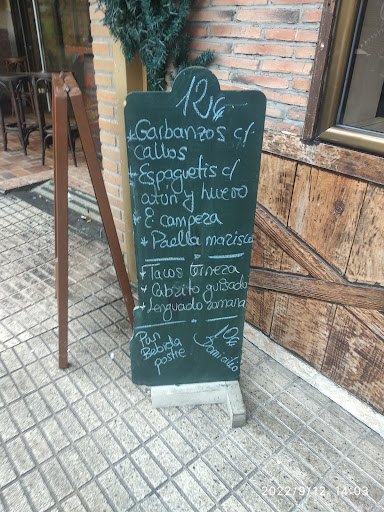 12€
* Garbanzos c/
callos
* Espaguetis c/
atún y huevo
* E campera
* Paella marisco
* Tacos ternera
* Cabrito guisado
* Lenguado romana
Pan
Bebida
postre
12€
Domicilio
2022/9/12 14:03